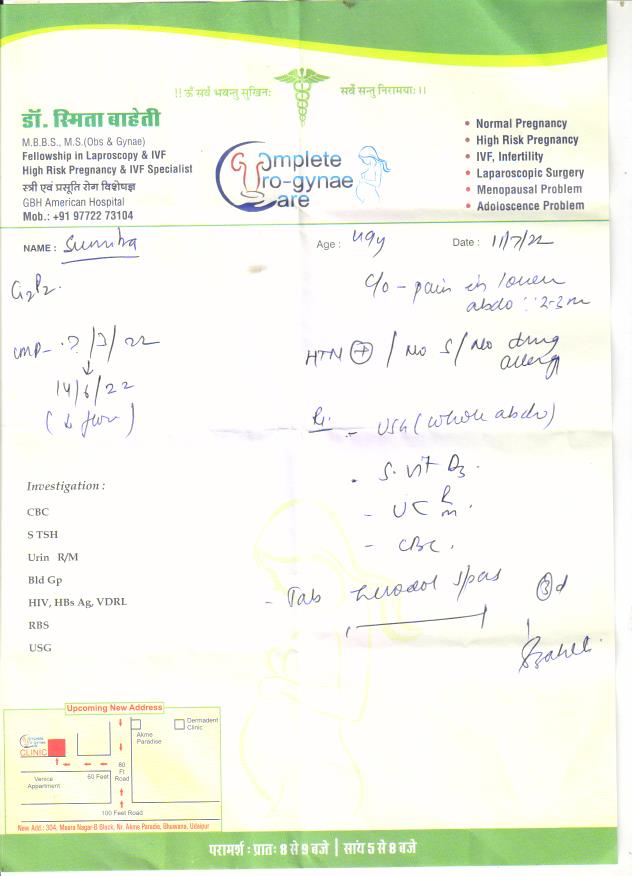 ।। ॐ सर्वे भवन्तु सुखिनः सर्वे सन्तु निरामयाः ।।
डॉ. स्मिता बाहेती
M.B.B.S., M.S.(Obs & Gynae)
Fellowship in Laproscopy & IVF
High Risk Pregnancy & IVF Specialist
स्त्री एवं प्रसूति रोग विशेषज्ञ
GBH American Hospital
Mob.: +91 97722 73104
Complete
Uro-gynae
Care
• Normal Pregnancy
• High Risk Pregnancy
• IVF, Infertility
• Laparoscopic Surgery
• Menopausal Problem
• Adoloscence Problem
NAME : Sumitra Age : 49y Date : 11/7/22
G2P2.
c/o - pain in lower
abdo 2-3m
LMP - ? /3/22
14/6/22
HTN + / No S/ No drug
allergy
Rx
- USG (whole abdo)
• S. Vit D3.
- U C R
m
- CBC.
- Tab spas 3d
Investigation :
CBC
S TSH
Urin R/M
Bld Gp
HIV, HBs Ag, VDRL
RBS
USG
Upcoming New Address
Complete Uro-gynae Care
CLINIC
Akme
Paradise
Dermadent
Clinic
Venice
Appartment
60 Feet
80
Ft
Road
100 Feet Road
New Add.: 304, Meera Nagar-B Block, Nr. Akme Paradie, Bhuwana, Udaipur
परामर्श : प्रातः 8 से 9 बजे | सांय 5 से 8 बजे